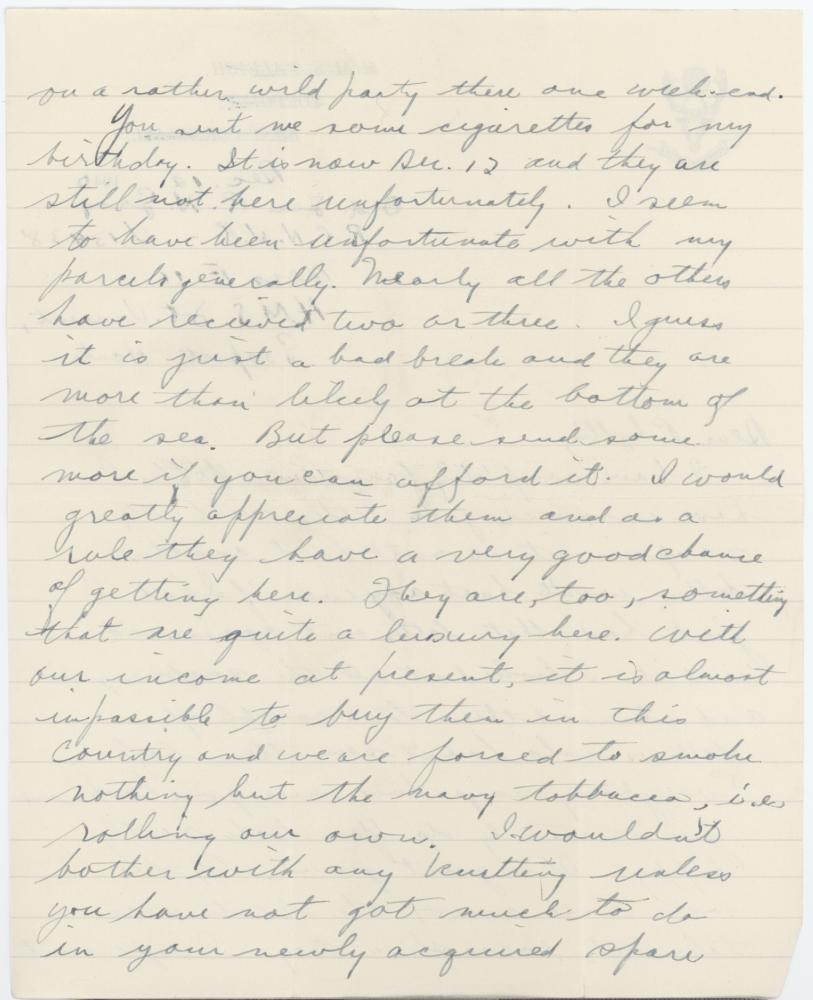 on a rather wild party there one week-end.
You sent me some cigarettes for my
birthday. It is now Dec. 12 and they are
still not here unfortunately. I seem
to have been unfortunate with my
parcels generally. Nearly all the others
have recieved two or three. I guess
it is just a bad break and they are
more than likely at the bottom of
the sea. But please send some
more if you can afford it. I would
greatly appreciate them and as a
rule they have a very good chance
of getting here. They are, too, something
that are quite a luxury here. With
our income at present, it is almost
impossible to buy them in this
country and we are forced to smoke
nothing but the navy tobbacco, i.e.
rolling our own. I wouldn't
bother with any knitting unless
you have not got much to do
in your newly acquired spare